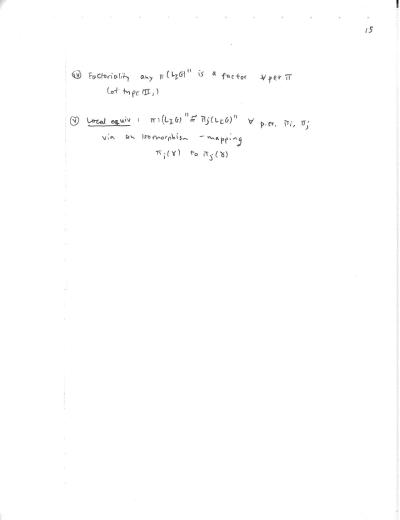 15
(iv) Factoriality any π(L_I G)'' is a factor ∀ per π
(of type III,)
(v) Local equiv : πi(L_I G)'' ≅ πj(L_I G)'' ∀ p.er. πi, πj
via an isomorphism - mapping
πi(γ) to πj(γ)